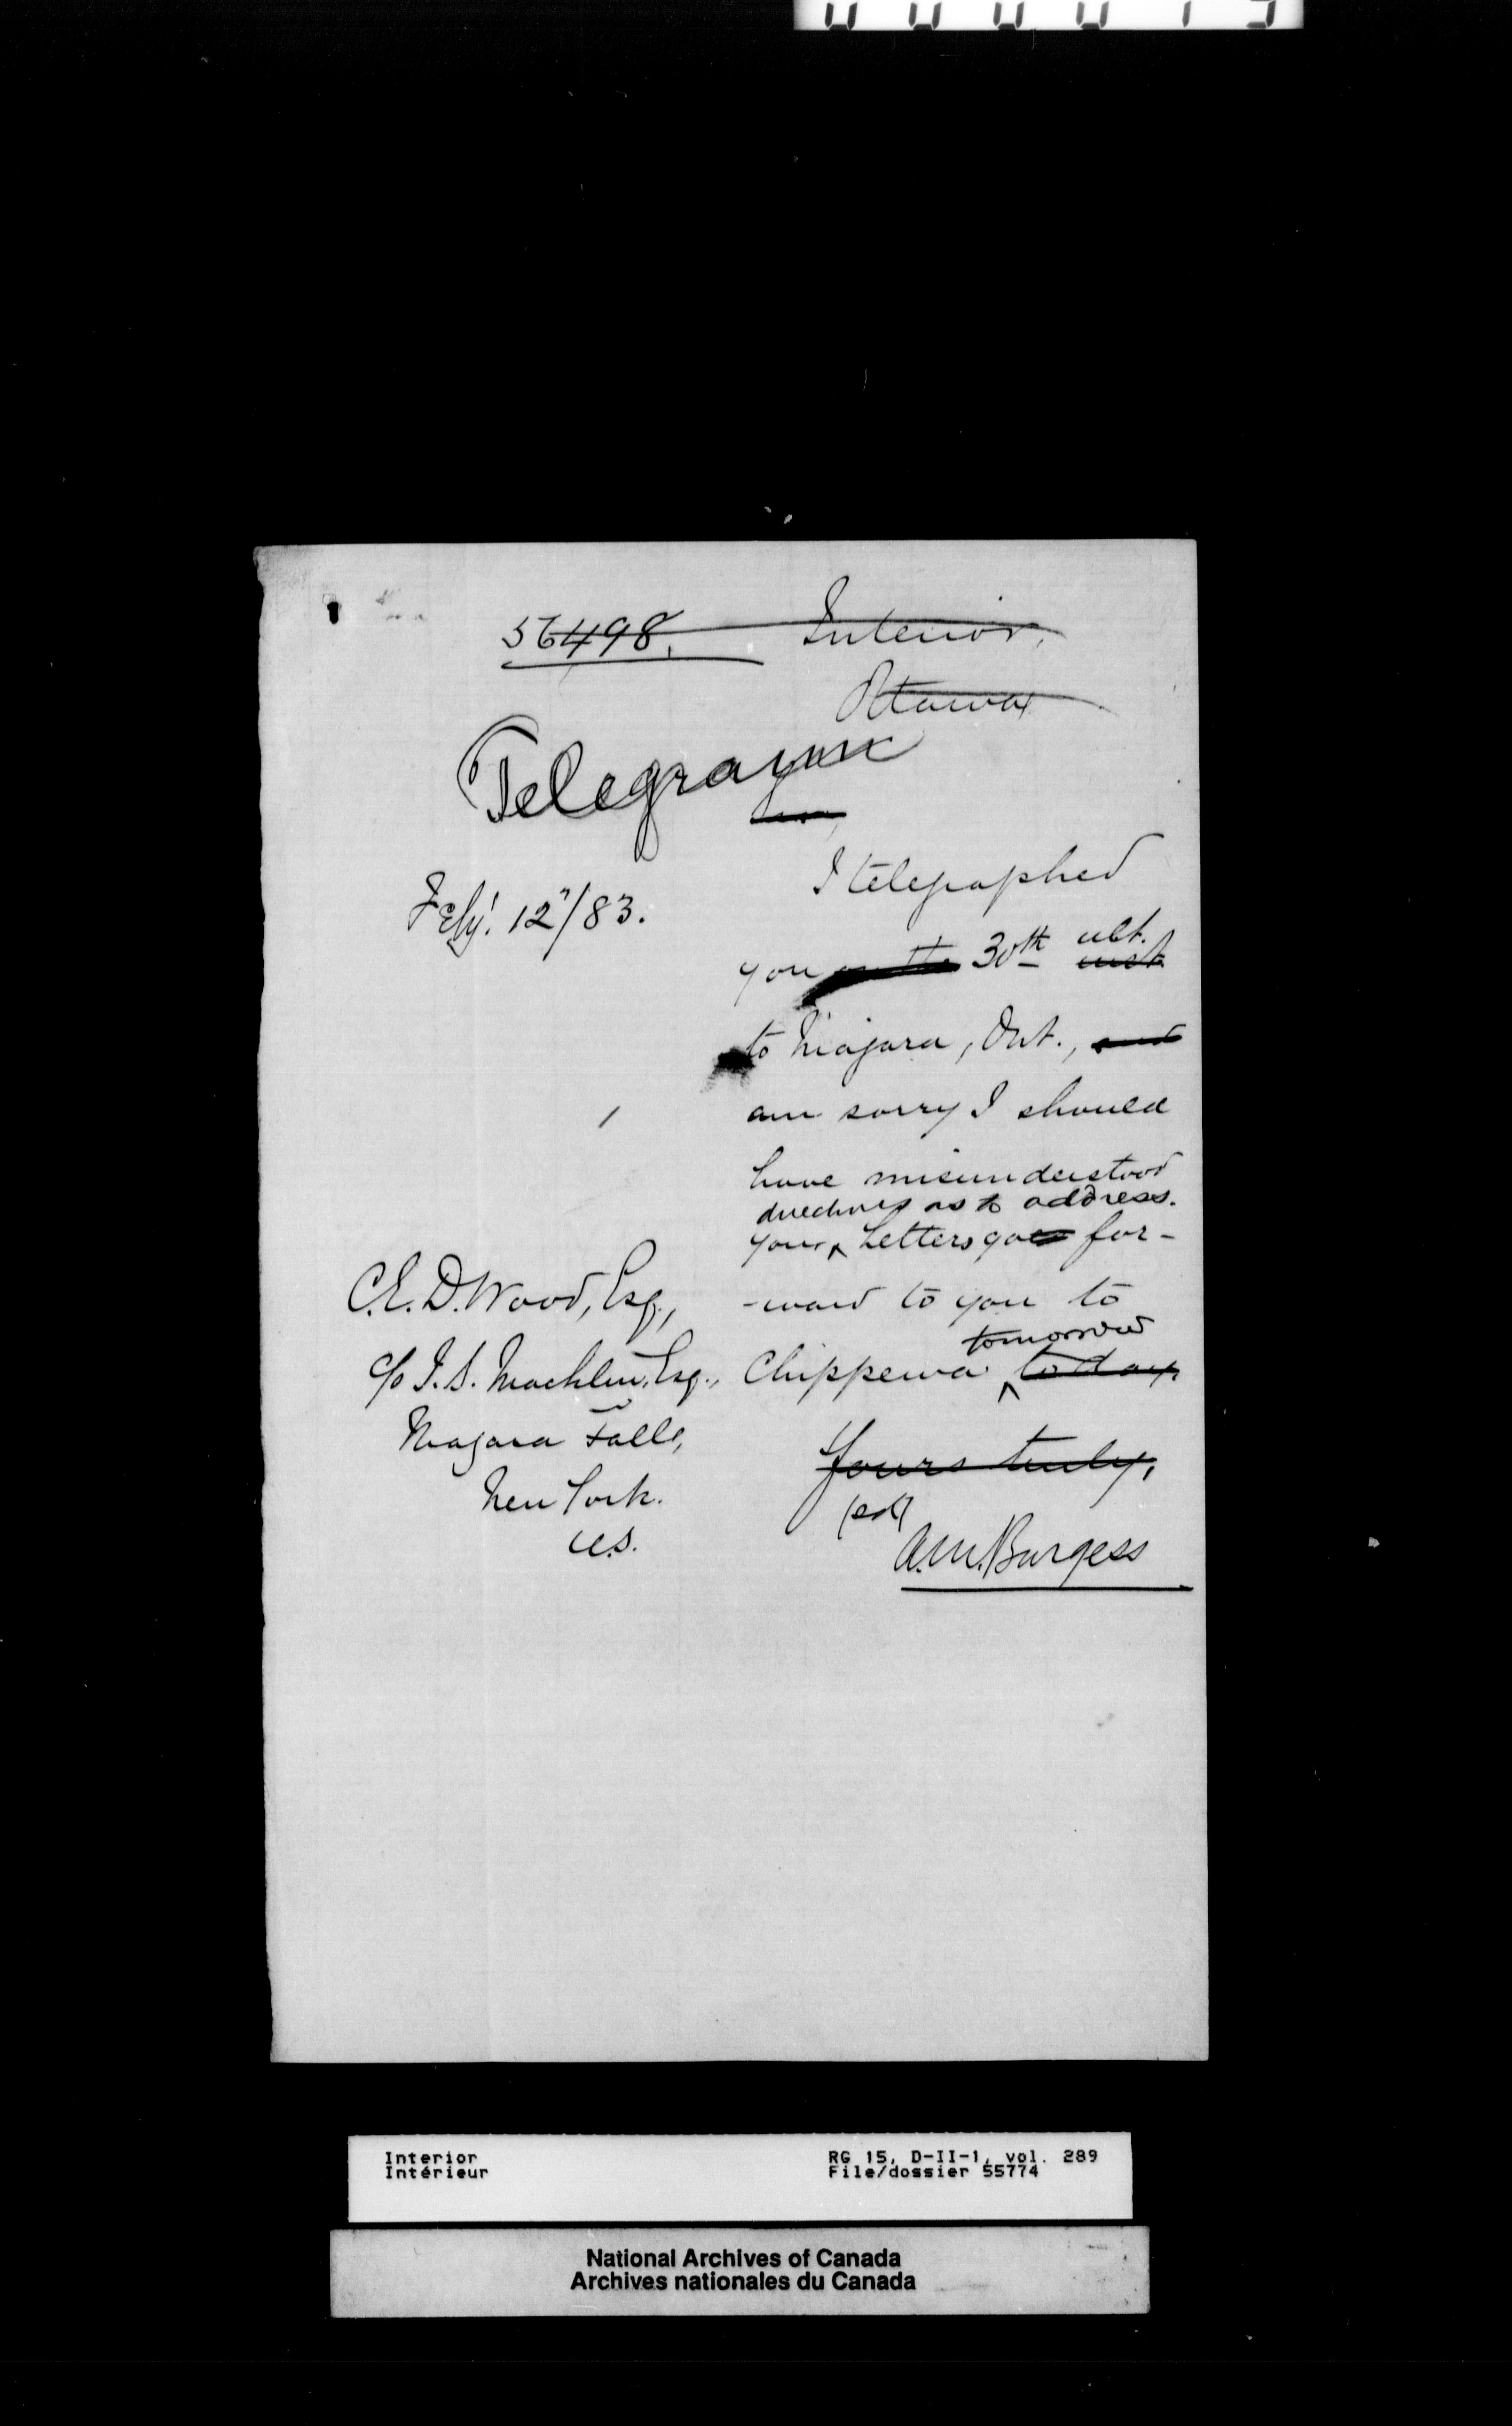 56498. Interior,
Ottawa
Telegram
Sir,
Feby. 12"/83.
I telegraphed
you on the 30th ult. inst
to Niagara, Ont., and
am sorry I should
have misunderstood
directions as to address.
your Letters goes for-
-ward to you to
tomorrow
Chippewa to day
Yours truly,
(sd)
A.M. Burgess
C.E.D. Wood, Esq.,
c/o J.S. Macklem, Esq.,
Niagara Falls,
New York.
U.S.
Interior
Intérieur
RG 15, D-II-1, vol. 289
File/dossier 55774
National Archives of Canada
Archives nationales du Canada